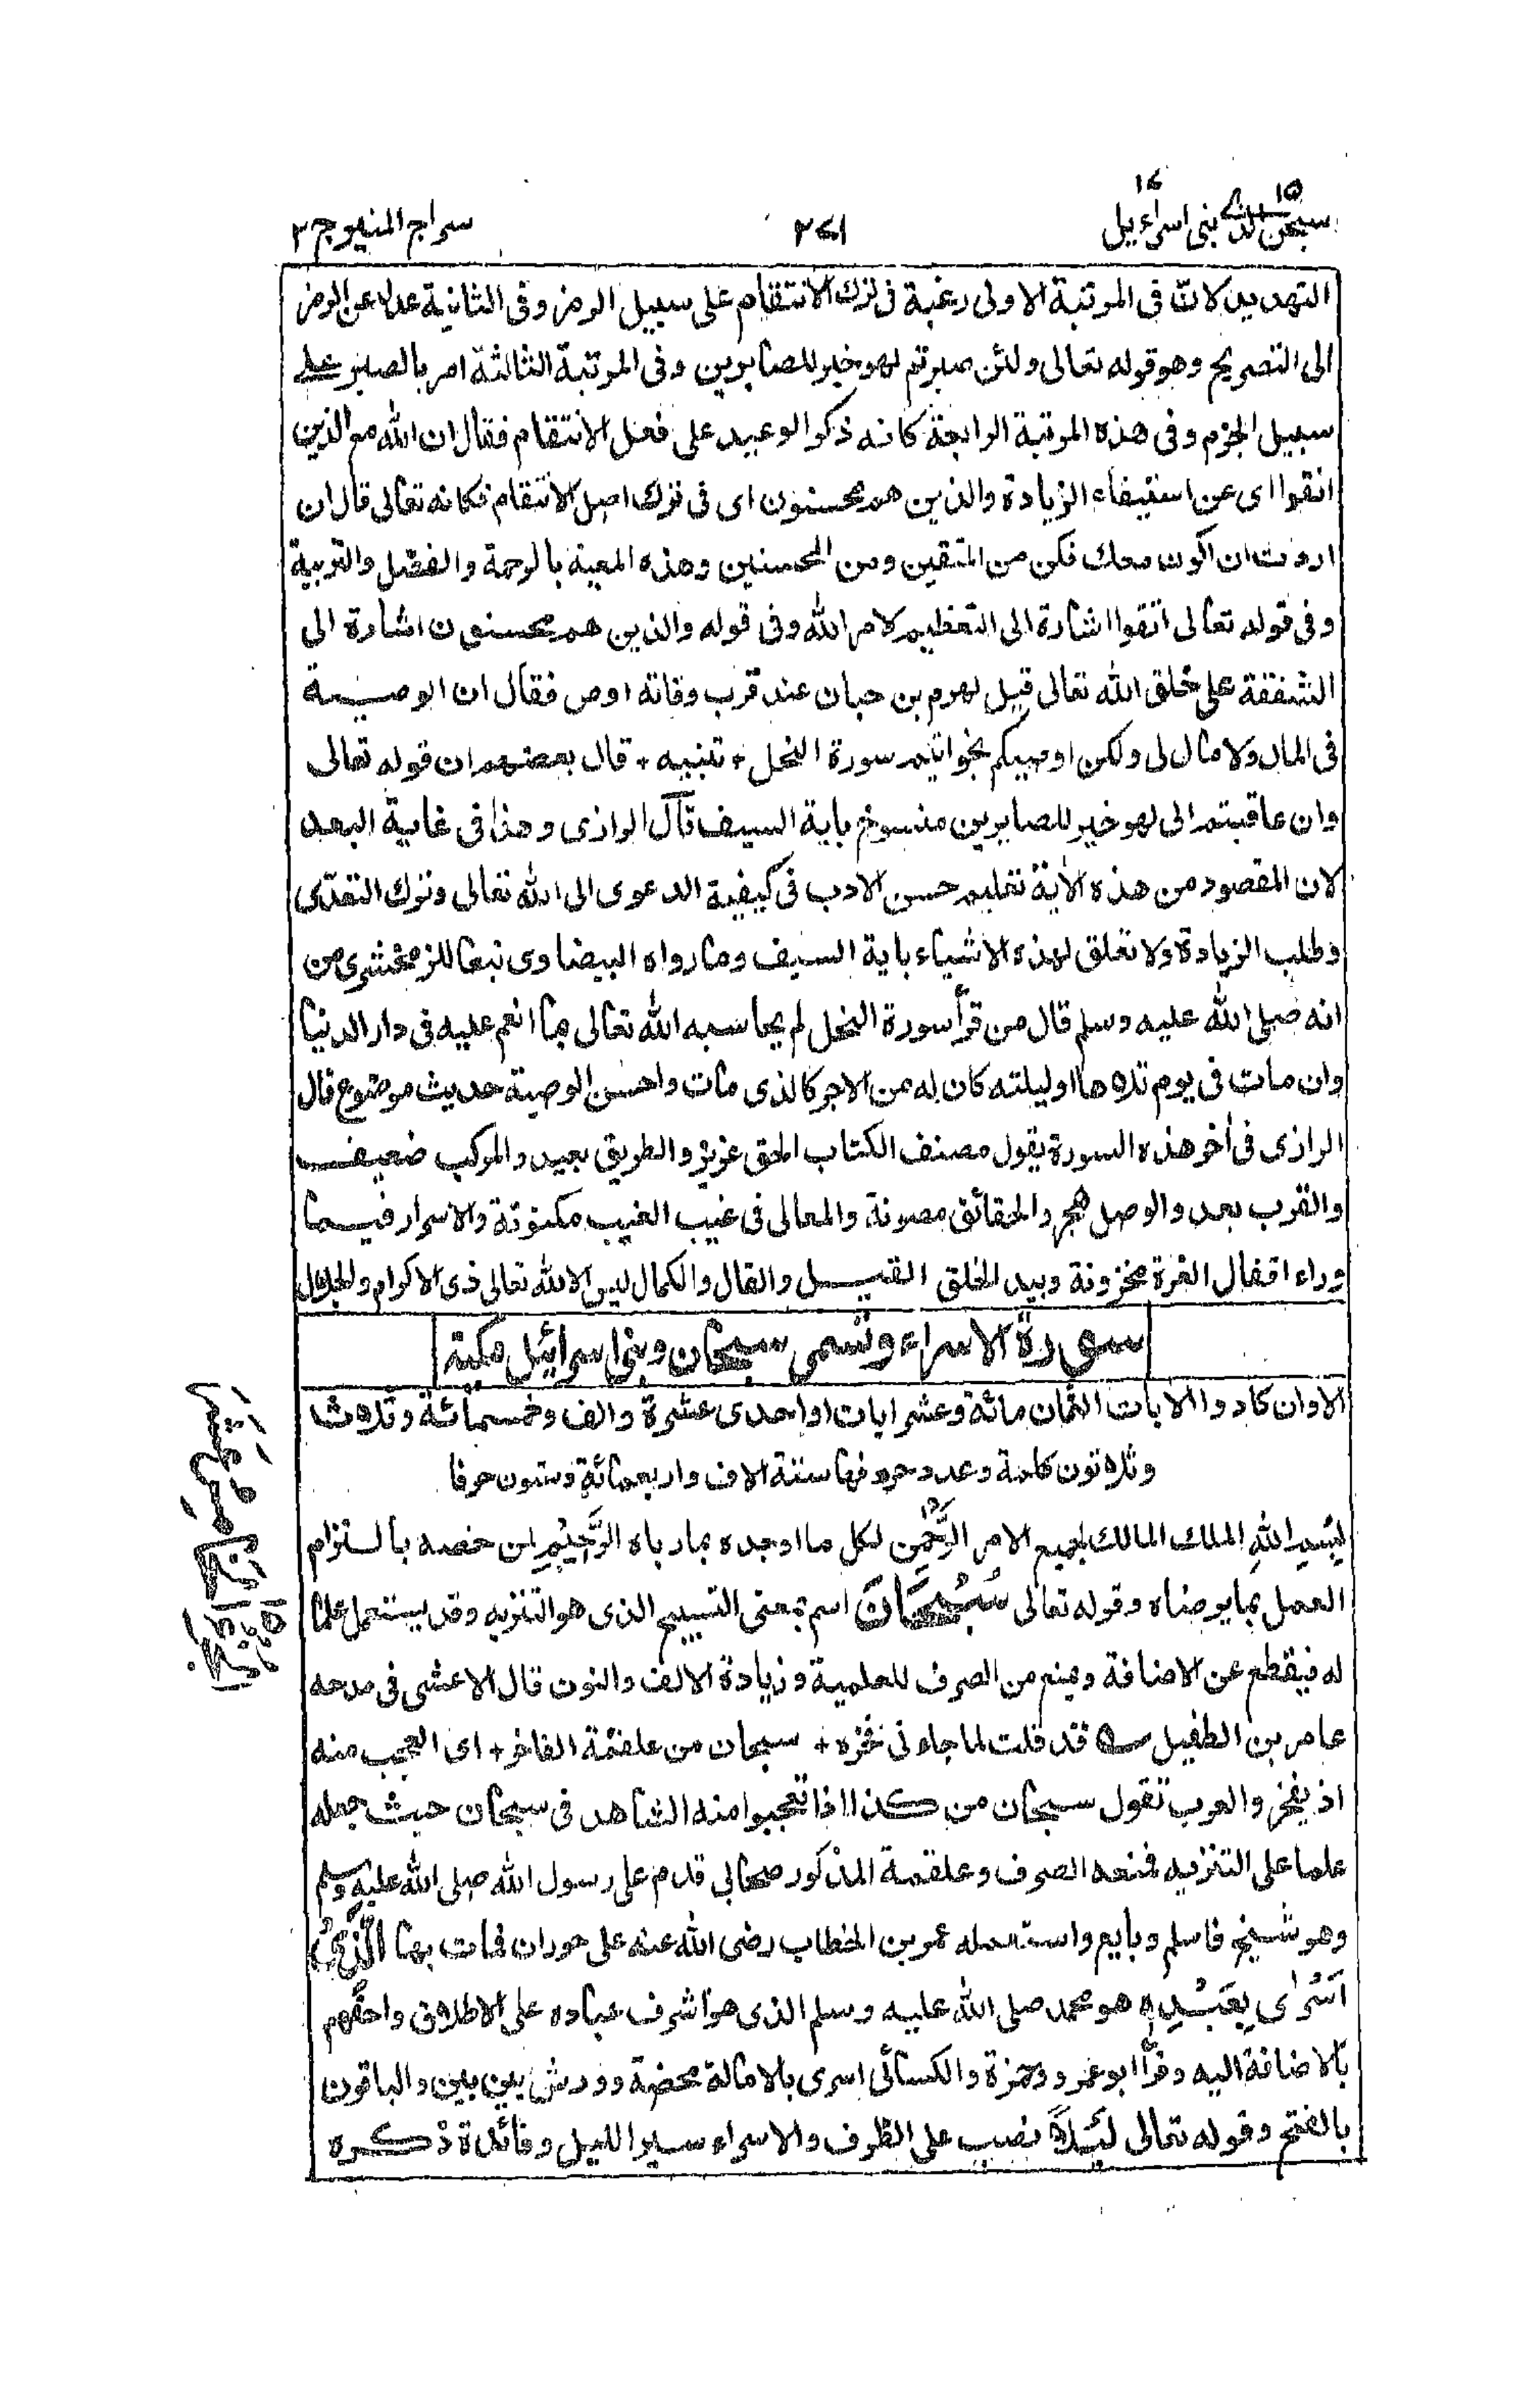 سبحن الذی ١٥ بنی اسراءیل ١٧
٢٧١
سراج المنیر ج ٢
التهدید لانّ فی المرتبة الاولی رغبة فی ترك الانتقام علی سبیل الرمز وفی الثانیة عدل عن الرمز
الی التصریح وهو قوله تعالی ولئن صبرتم لهو خیر للصابرین وفی المرتبة الثالثة امر بالصبر علی
سبیل الجزم وفی هذه المرتبة الرابعة کانه ذکر الوعید علی فعل الانتقام فقال ان الله مع الذین
اتقوا ای عن استیفاء الزیادة والذین هم محسنون ای فی ترك اصل الانتقام فکانه تعالی قال ان
اردت ان اکون معك فکن من المتقین ومن المحسنین وهذه المعیة بالرحمة والفضل والتربیة
وفی قوله تعالی اتقوا اشارة الی التعظیم لامر الله وفی قوله والذین هم محسنون اشارة الی
الشفقة علی خلق الله تعالی قیل لهرم بن حبان عند قرب وفاته اوص فقال ان الوصیة
فی المال ولا مال لی ولکن اوصیکم بخواتیم سورة النحل + تنبیه + قال بعضهم ان قوله تعالی
وان عاقبتم الی لهو خیر للصابرین منسوخ بایة السیف قال الرازی وهذا فی غایة البعد
لان المقصود من هذه الایة تعلیم حسن الادب فی کیفیة الدعوی الی الله تعالی وترك التعدّی
وطلب الزیادة ولا تعلق لهذه الاشیاء بایة السیف وما رواه البیضاوی تبعا للزمخشری من
انه صلی الله علیه وسلم قال من قرأ سورة النحل لم یحاسبه الله تعالی بما انعم علیه فی دار الدنیا
وان مات فی یوم تلاها او لیلته کان له من الاجر کالذی مات واحسن الوصیة حدیث موضوع قال
الرازی فی اخر هذه السورة یقول مصنف الکتاب الحق عزیز والطریق بعید والمرکب ضعیف
والقرب بعد والوصل هجر والحقائق مصونة والمعالی فی غیب الغیب مکنونة والاسرار فیما
وراء اقفال العزة مخزونة وبید الخلق القیل والقال والکمال لیس الا لله تعالی ذی الاکرام والجلال
سورة الاسراء وتسمی سبحان وبنی اسرائیل مکیة
الا وان کادوا الایات الثمان مائة وعشر ایات او احدی عشرة والف وخمسمائة وثلاث
وثلاثون کلمة وعدد حروفها ستة الاف واربعمائة وستون حرفا
بسم الله الملك المالك لجمیع الامر الرحمٰن لکل ما اوجده بما رباه الرحیم لمن خصه بالتزام
العمل بما یرضاه وقوله تعالی سُبْحَانَ اسم بمعنی التسبیح الذی هو التنزیه وقد یستعمل علما
له فیقطع عن الاضافة ویمنع من الصرف للعلمیة وزیادة الالف والنون قال الاعشی فی مدحه
عامر بن الطفیل قد قلت لما جاءنی فخره + سبحان من علقمة الفاخر + ای العجب منه
اذ یفخر والعرب تقول سبحان من کذا اذا تعجبوا منه الشاهد فی سبحان حیث جعله
علما علی التنزیه فمنعه الصرف وعلقمة المذکور صحابی قدم علی رسول الله صلی الله علیه وسلم
وهو شیخ فاسلم وبایع واستعمله عمر بن الخطاب رضی الله عنه علی حوران فمات بها الَّذِیْ
اَسْرٰی بِعَبْدِهٖ هو محمد صلی الله علیه وسلم الذی هو اشرف عباده علی الاطلاق واحقهم
بالاضافة الیه وقرأ ابو عمرو وحمزة والکسائی اسری بالامالة محضة وورش بین بین والباقون
بالفتح وقوله تعالی لَیْلًا نصب علی الظرف والاسراء سیر اللیل وفائدة ذکره